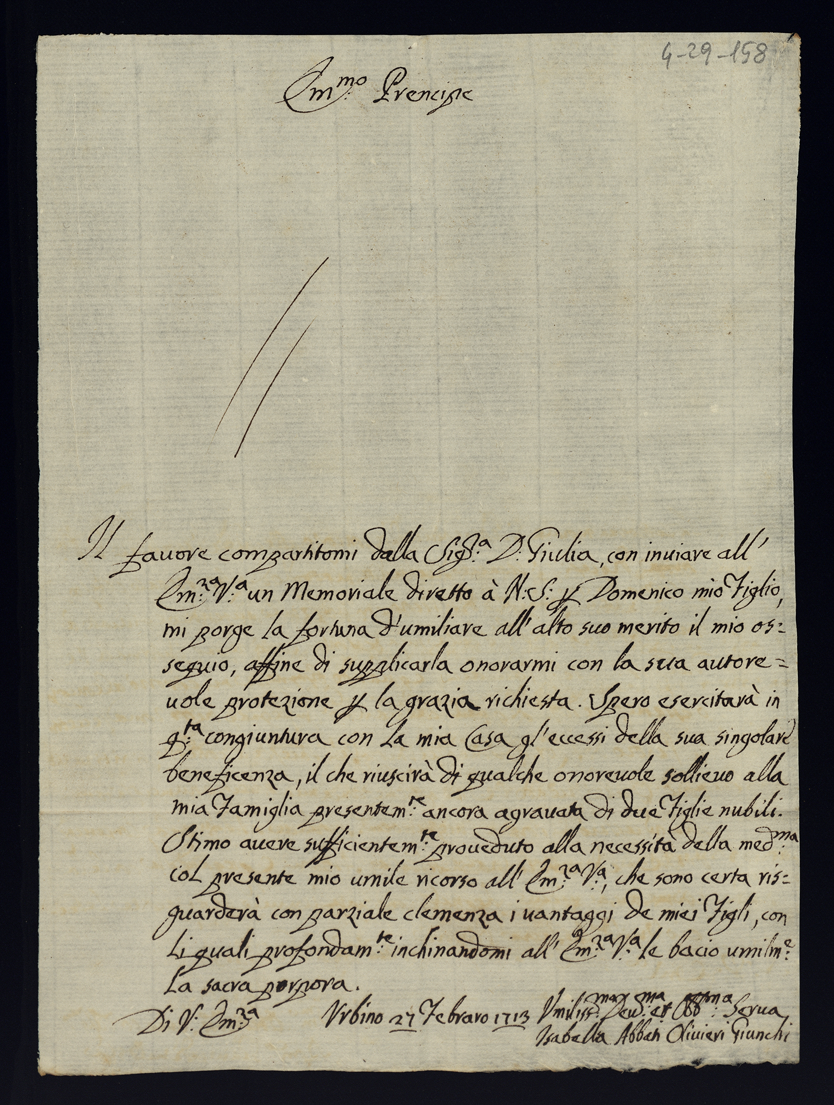 4-29-158
Em.mo Prencipe
Il favore compartitomi dalla Sig.ra D. Giulia, con inviare all'
Em.za V.a un Memoriale diretto à N.S. p Domenico mio Figlio,
mi porge la fortuna d'umiliare all'alto suo merito il mio os=
sequio, affine di supplicarla onorarmi con la sua autore=
uole protezione p la grazia richiesta. Spero esercitarà in
q.ta congiuntura con la mia Casa gl'eccessi della sua singolare
beneficenza, il che riuscirà di qualche onoreuole sollieuo alla
mia Famiglia presentem.te ancora agrauata di due Figlie nubili.
Stimo auere sufficientem.te proueduto alla necessità della med.ma
col presente mio umile ricorso all'Em.za V.a, che sono certa ris=
guarderà con parziale clemenza i uantaggi de miei Figli, con
li quali profondam.te inchinandomi all'Em.za V.a le bacio umilm.e
la sacra porpora.
Di V. Em.za Vrbino 27 Febraro 1713 Vmiliss.ma Deu.ma et Obb.ma Serua
Isabella Abbati Oliuieri Giunchi